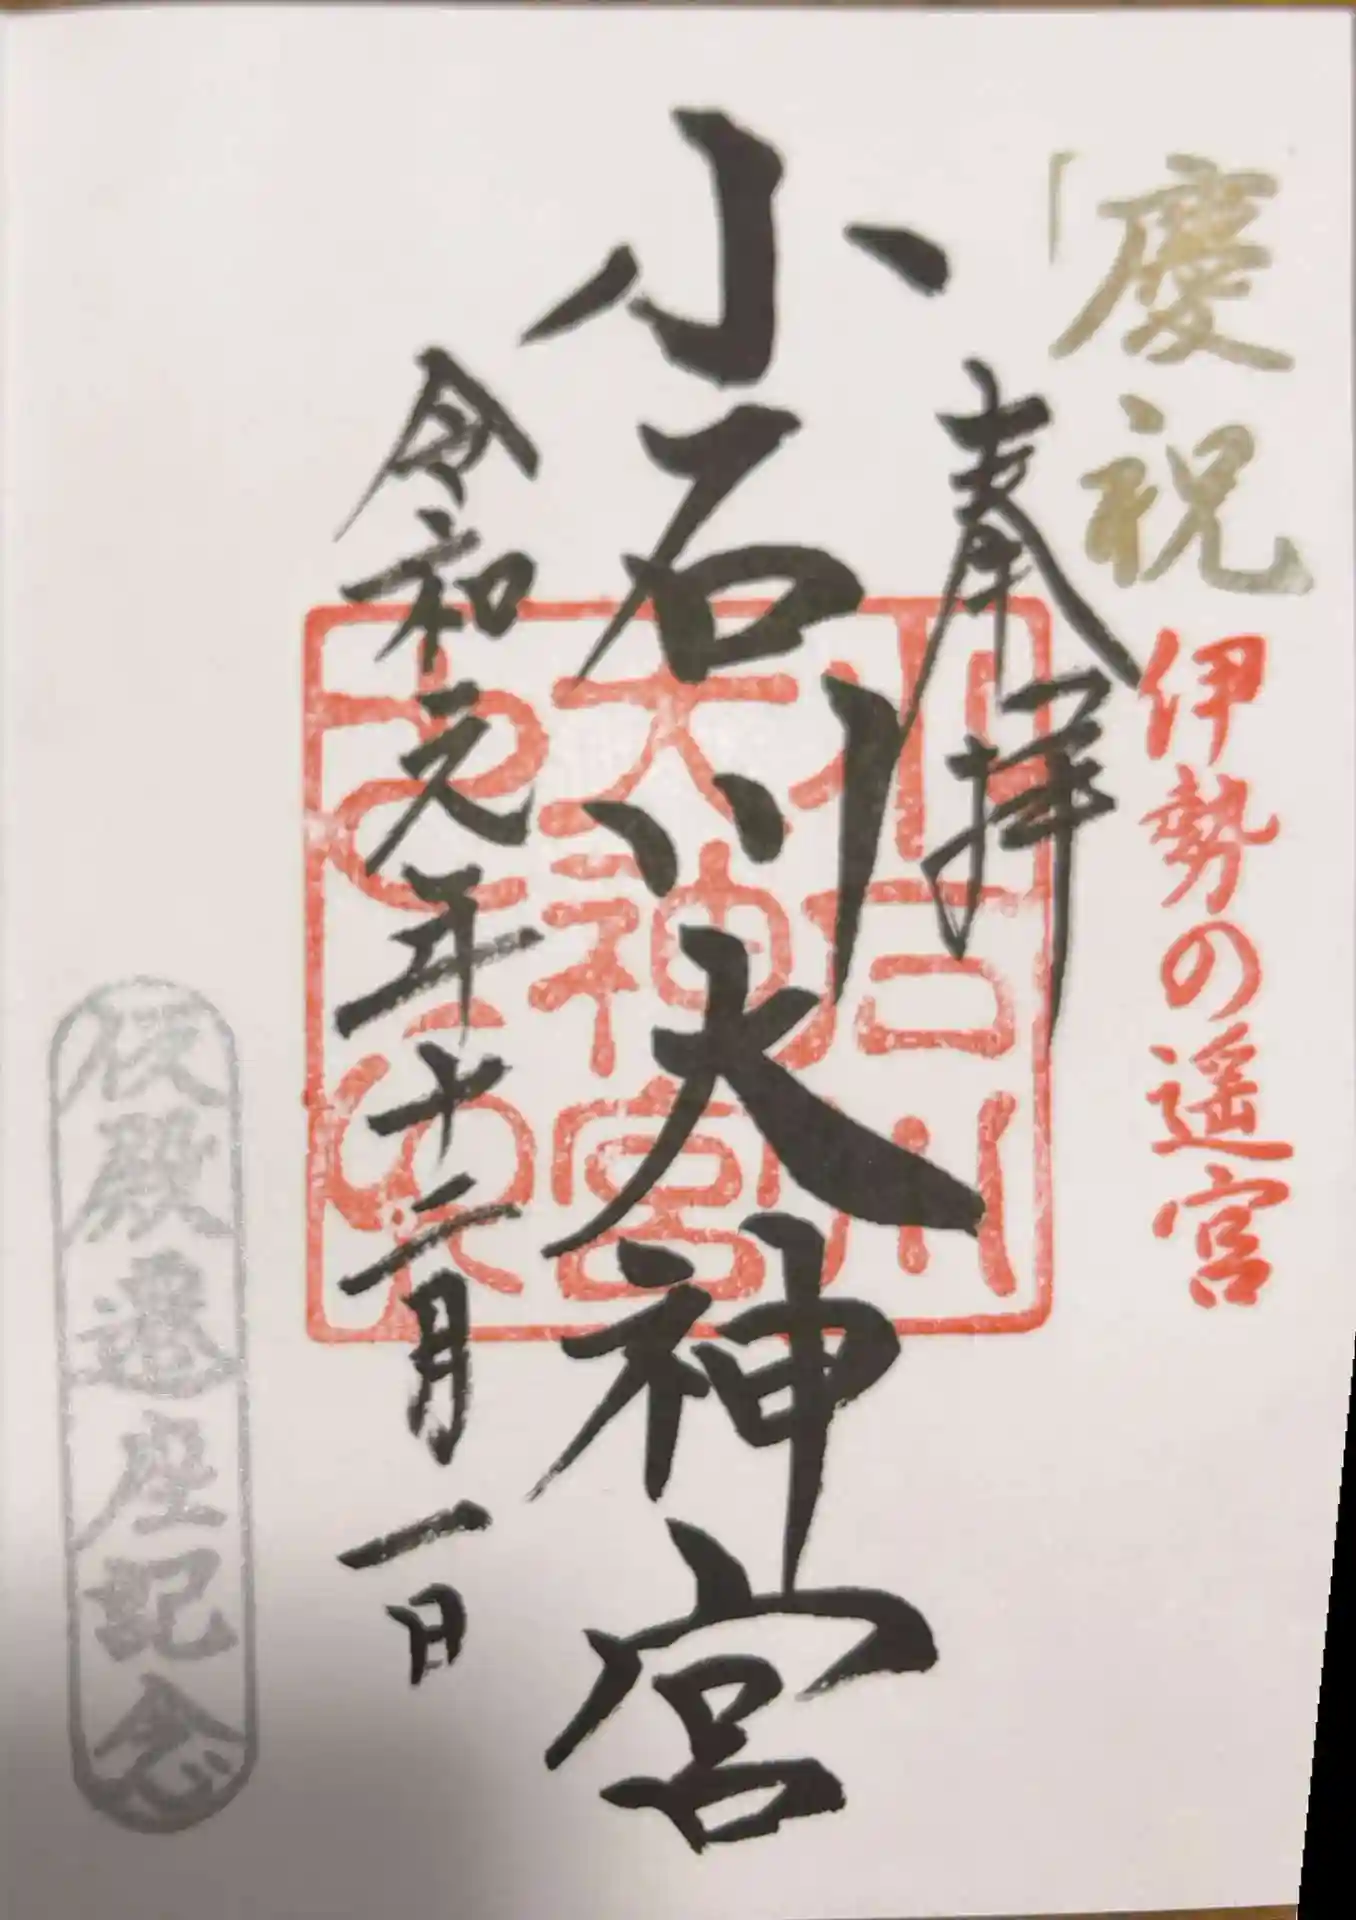 慶祝
伊勢の遥宮
奉拝
小石川大神宮
小石川
大神宮
令和元年十二月一日
仮殿遷座記念